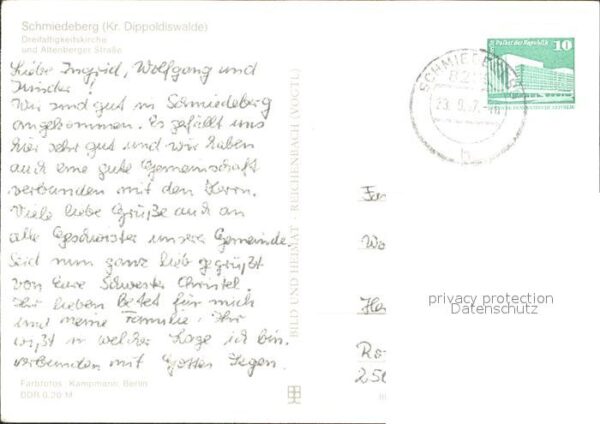 Schmiedeberg (Kr. Dippoldiswalde)
Dreifaltigkeitskirche
und Altenberger Straße
Liebe Ingrid, Wolfgang und
Kinder!
Wir sind gut in Schmiedeberg
angekommen. Es gefällt uns
hier sehr gut und wir haben
auch eine gute Gemeinschaft
verbunden mit dem Herrn.
Viele liebe Grüße auch an
alle Geschwister unserer Gemeinde.
Seid nun ganz lieb gegrüßt
von Eure Schwester Christel.
Ihr lieben betet für mich
und meine Familie. Ihr
wißt in welcher Lage ich bin.
verbunden mit Gottes Segen.
Farbfotos: Kampmann, Berlin
DDR 0,20 M
BILD UND HEIMAT · REICHENBACH (VOGTL)
SCHMIEDEB
Palast der Republik
10
privacy protection
Datenschutz